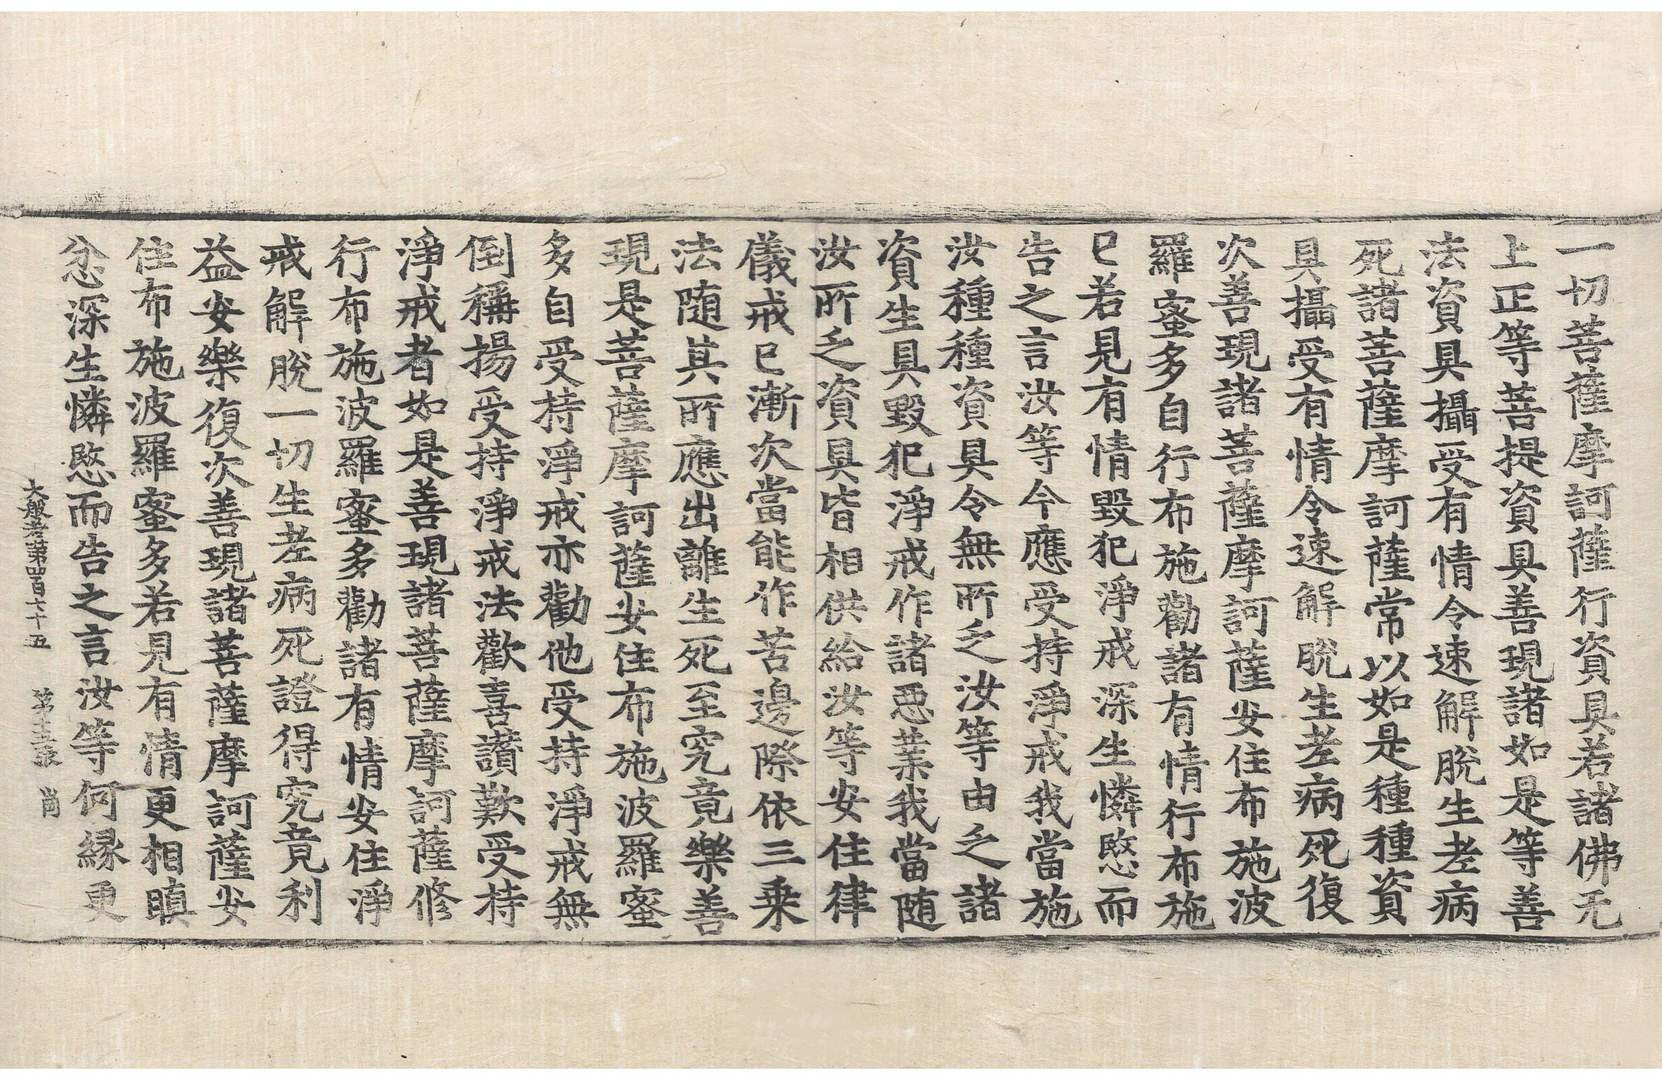 一切菩薩摩訶薩行資具若諸佛无
上正等菩提資具善現諸如是等善
法資具攝受有情令速解脫生老病
死諸菩薩摩訶薩常以如是種種資
具攝受有情令速解脫生老病死復
次善現諸菩薩摩訶薩安住布施波
羅蜜多自行布施勸諸有情行布施
已若見有情毀犯淨戒深生憐愍而
告之言汝等今應受持淨戒我當施
汝種種資具令無所乏汝等由乏諸
資生具毀犯淨戒作諸惡業我當随
汝所乏資具皆相供給汝等安住律
儀戒已漸次當能作苦邊際依三乘
法随其所應出離生死至究竟樂善
現是菩薩摩訶薩安住布施波羅蜜
多自受持淨戒亦勸他受持淨戒無
倒稱揚受持淨戒法歡喜讚歎受持
淨戒者如是善現諸菩薩摩訶薩修
行布施波羅蜜多勸諸有情安住淨
戒解脫一切生老病死證得究竟利
益安樂復次善現諸菩薩摩訶薩安
住布施波羅蜜多若見有情更相瞋
忿深生憐愍而告之言汝等何縁更
大般若第四百七十五 第十三張 崗